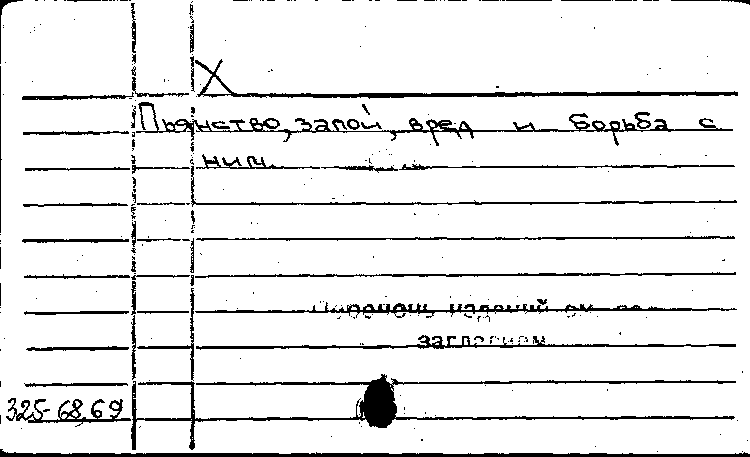 X
Пьянство, запой, вред и борьба с
ним.
Перечень изданий см. под
заглавием
325-68,69